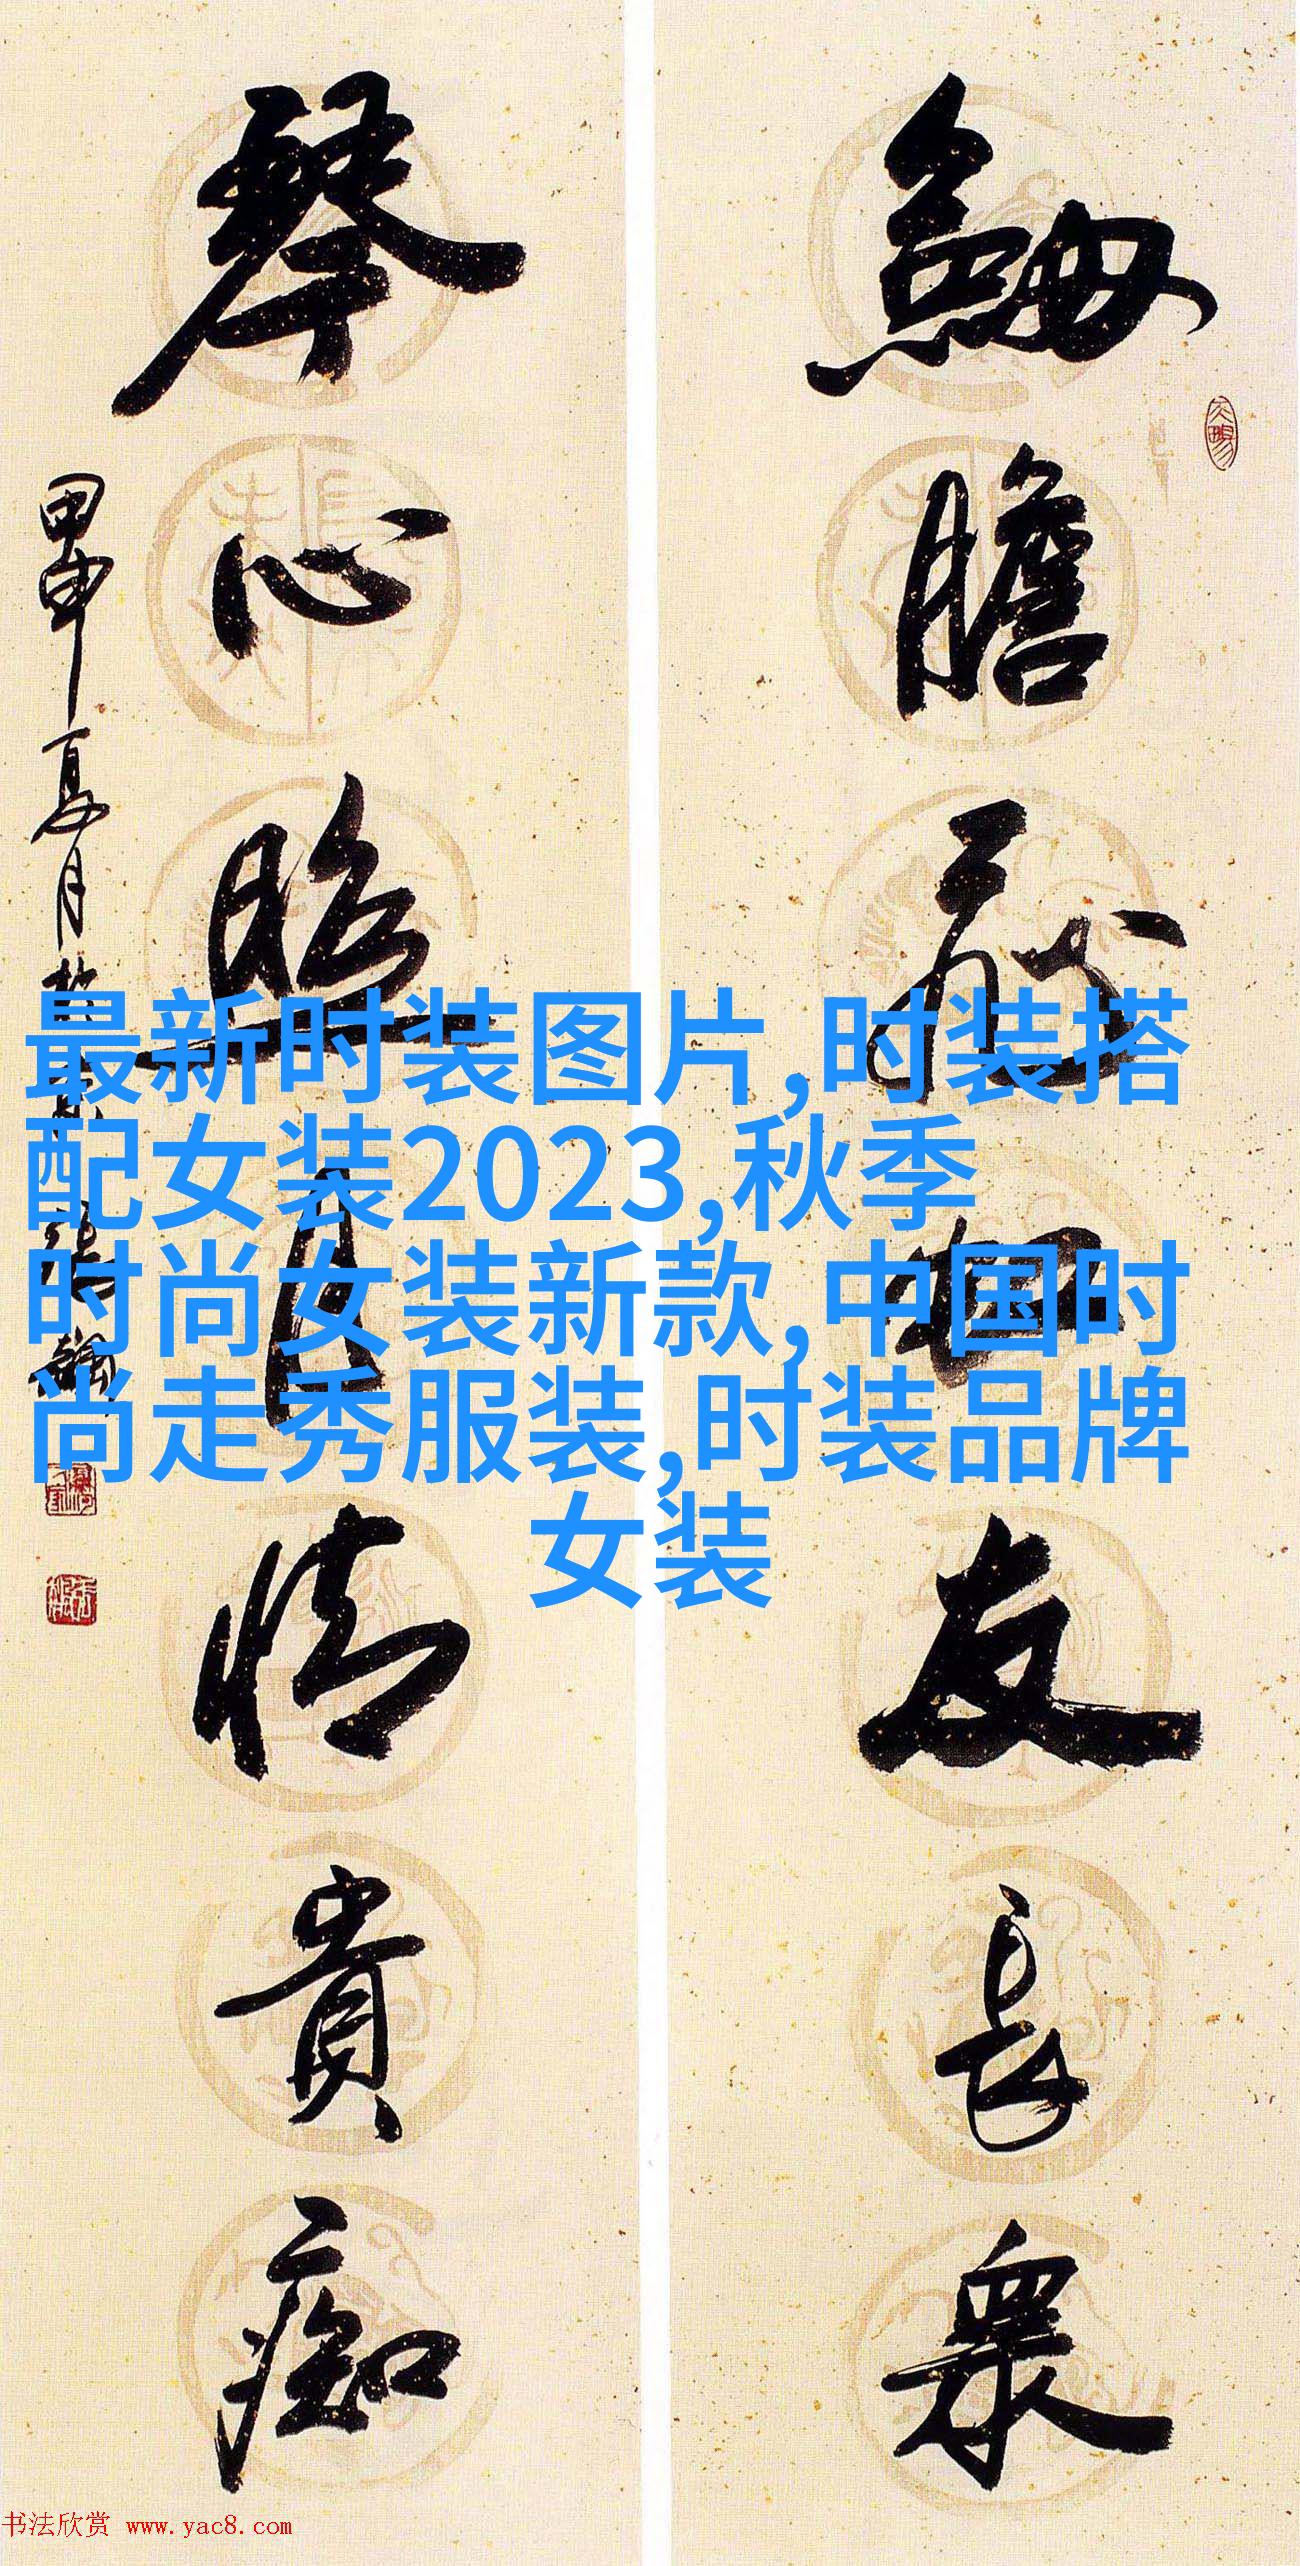 劍膽
友長衆
琴心照月情貴痴
甲申夏月
最新时装图片,时装搭
配女装2023,秋季
时尚女装新款,中国时
尚走秀服装,时装品牌
女装
书法欣赏 www.yac8.com